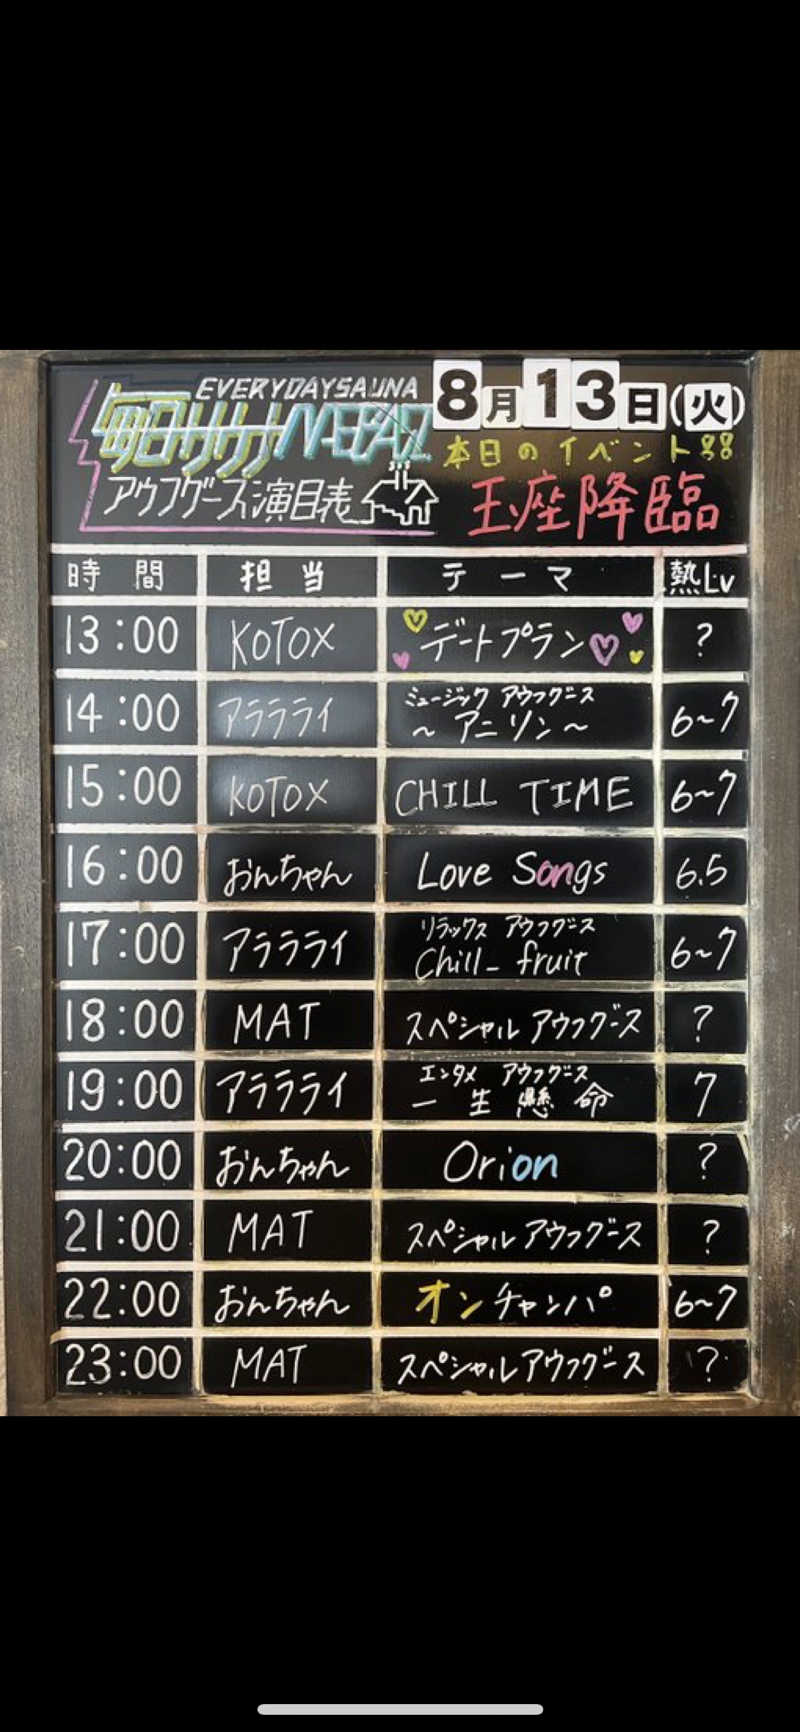 EVERYDAYSAUNA
毎日サウナ
アウフグース演目表
8月13日(火)
本日のイベント
玉座降臨
時間 担当 テーマ 熱Lv
13:00 KOTOX デートプラン ?
14:00 アラララライ ミュージック アウフグース
~アニソン~ 6~7
15:00 KOTOX CHILL TIME 6~7
16:00 おんちゃん Love Songs 6.5
17:00 アラララライ リラックス アウフグース
Chill_ fruit 6~7
18:00 MAT スペシャル アウフグース ?
19:00 アラララライ エンタメ アウフグース
一生懸命 7
20:00 おんちゃん Orion ?
21:00 MAT スペシャル アウフグース ?
22:00 おんちゃん オンチャンパ 6~7
23:00 MAT スペシャルアウフグース ?